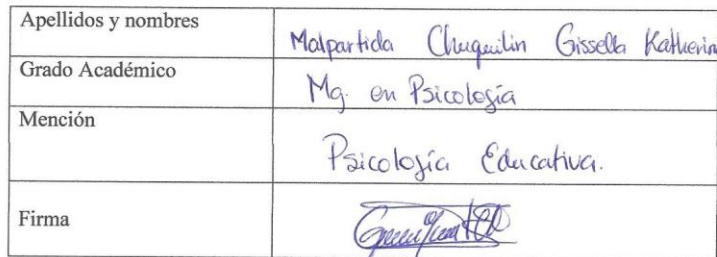 Apellidos y nombres Malpartida Chuquilin Gissella Katherin
Grado Académico Mg. en Psicología
Mención Psicología Educativa.
Firma